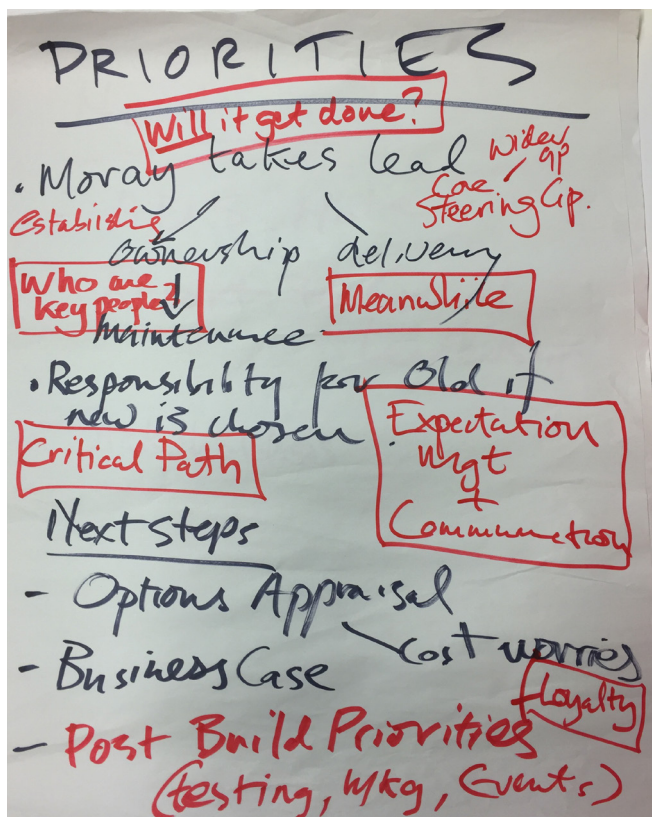 PRIORITIES
Will it get done?
• Moray takes lead
Wider
gp
Core
Steering Gp.
Establishing
Ownership delivery
Who are
key people?
Meanwhile
Maintenance
• Responsibility for Old if
new is chosen
Expectation
Mgt
+
Communication
Critical Path
Next steps
- Options Appraisal
Cost worries
- Business Case
+ Loyalty
- Post Build Priorities
(testing, Mkg, Events)